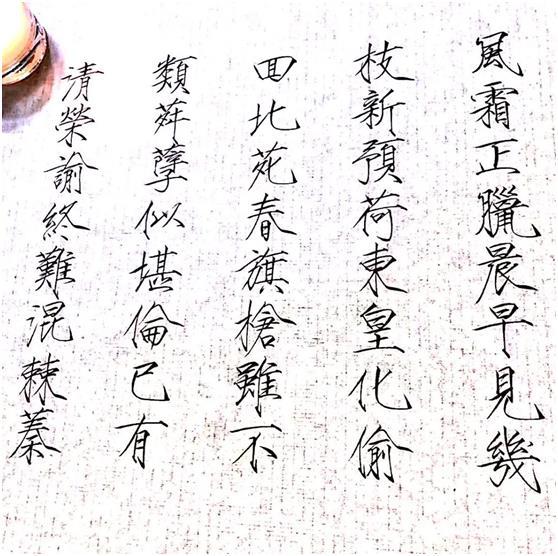 風霜正臘晨早見幾
枝新預荷東皇化偷
回北苑春旗槍雖不
類荈孽似堪倫已有
清榮諭終難混棘蓁